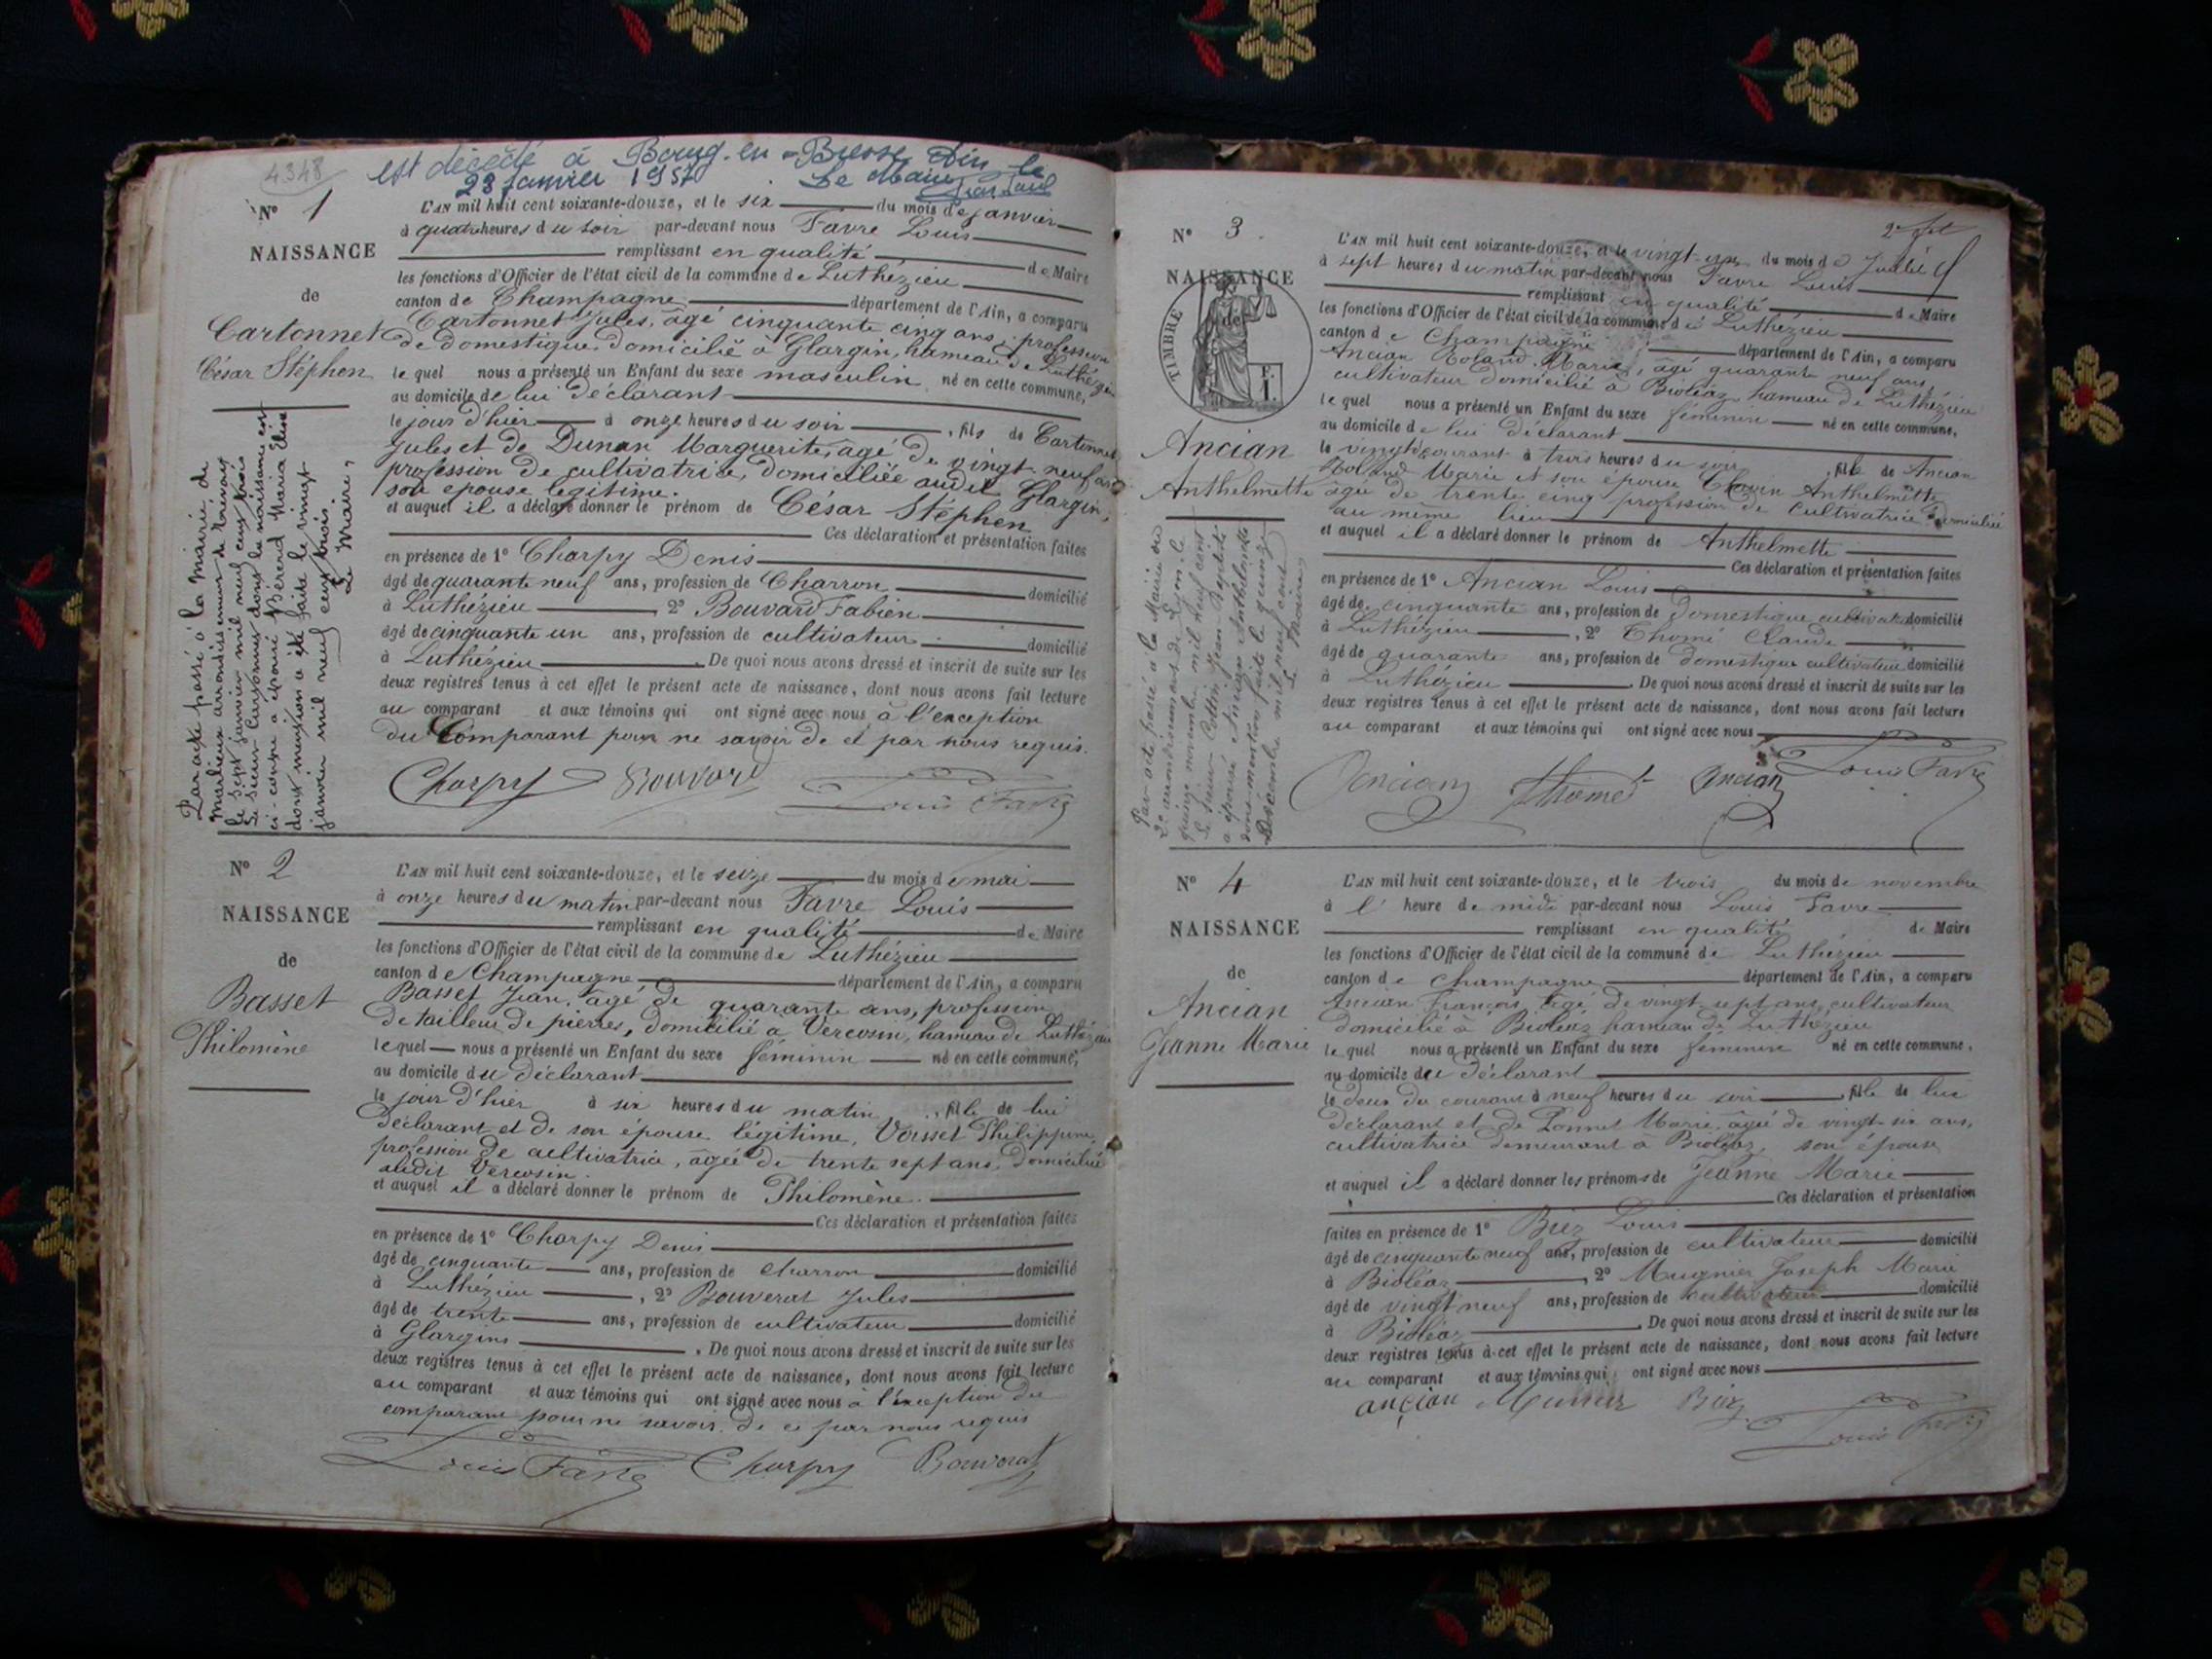 4348
est décédé à Bourg-en-Bresse Ain le
23 janvier 1957 Le Maire
N° 1
NAISSANCE
de
Cartonnet
César Stéphen
Par acte passé à la Mairie de
le sept janvier mil neuf cent trois
le sieur Cartonnet dont la naissance est
ci-contre a épousé Bérend Maria Elisa
dont mention a été faite le vingt
janvier mil neuf cent trois.
Le Maire,
L'AN mil huit cent soixante-douze, et le six du mois de janvier
à quatre heures du soir par-devant nous Favre Louis
remplissant en qualité de Maire
les fonctions d'Officier de l'état civil de la commune de Luthézieu
canton de Champagne département de l'Ain, a comparu
Cartonnet Jules, âgé cinquante cinq ans, profession
de domestique domicilié à Glargin, hameau de Luthézieu
lequel nous a présenté un Enfant du sexe masculin né en cette commune,
au domicile de lui déclarant
le jour d'hier à onze heures du soir, fils de Cartonnet
Jules et de Dunan Marguerite, âgé de vingt-neuf ans
profession de cultivatrice, domiciliée audit Glargin,
son épouse légitime.
et auquel il a déclaré donner le prénom de César Stéphen
Ces déclaration et présentation faites
en présence de 1° Charpy Denis
âgé de quarante neuf ans, profession de Charron domicilié
à Luthézieu 2° Bouvard Fabien
âgé de cinquante un ans, profession de cultivateur domicilié
à Luthézieu. De quoi nous avons dressé et inscrit de suite sur les
deux registres tenus à cet effet le présent acte de naissance, dont nous avons fait lecture
au comparant et aux témoins qui ont signé avec nous à l'exception
du Comparant pour ne savoir de et par nous requis.
Charpy Bouvard Louis Favre
N° 2
NAISSANCE
de
Basset
Philomène
L'AN mil huit cent soixante-douze, et le seize du mois de mai
à onze heures du matin par-devant nous Favre Louis
remplissant en qualité de Maire
les fonctions d'Officier de l'état civil de la commune de Luthézieu
canton de Champagne département de l'Ain, a comparu
Basset Jean, âgé de quarante ans, profession
de tailleur de pierres, domicilié à Vercosin, hameau de Luthézieu
lequel nous a présenté un Enfant du sexe féminin né en cette commune,
au domicile du déclarant
le jour d'hier à six heures du matin, fille de lui
déclarant et de son épouse légitime, Voisset Philippine,
profession de cultivatrice, âgée de trente sept ans, domiciliée
audit Vercosin.
et auquel il a déclaré donner le prénom de Philomène.
Ces déclaration et présentation faites
en présence de 1° Charpy Denis
âgé de cinquante ans, profession de charron domicilié
à Luthézieu, 2° Bouverat Jules
âgé de trente ans, profession de cultivateur domicilié
à Glargins. De quoi nous avons dressé et inscrit de suite sur les
deux registres tenus à cet effet le présent acte de naissance, dont nous avons fait lecture
au comparant et aux témoins qui ont signé avec nous à l'exception du
comparant pour ne savoir, de ce par nous requis
Louis Favre Charpy Bouverat
N° 3
NAISSANCE
de
TIMBRE
Ancian
Anthelmette
Par acte passé à la Mairie du
2e arrondissement de Lyon le
quinze novembre mil neuf cent
le sieur Cottin Jean-Baptiste
a épousé Ancian Anthelmette
dont mention faite le quinze
décembre mil neuf cent
Le Maire
L'AN mil huit cent soixante-douze, et le vingt-un du mois de Juillet
à sept heures du matin par-devant nous Favre Louis
remplissant en qualité de Maire
les fonctions d'Officier de l'état civil de la commune de Luthézieu
canton de Champagne département de l'Ain, a comparu
Ancian Roland Marie, âgé quarante neuf ans,
cultivateur domicilié à Bioléaz hameau de Luthézieu
lequel nous a présenté un Enfant du sexe féminin né en cette commune,
au domicile de lui déclarant
le vingt courant à trois heures du soir, fille de Ancian
Roland Marie et son épouse Anthelmette
âgée de trente cinq profession de cultivatrice domiciliée
au même lieu
et auquel il a déclaré donner le prénom de Anthelmette
Ces déclaration et présentation faites
en présence de 1° Ancian Louis
âgé de cinquante ans, profession de domestique cultivateur domicilié
à Luthézieu, 2° Thomé Claude
âgé de quarante ans, profession de domestique cultivateur domicilié
à Luthézieu. De quoi nous avons dressé et inscrit de suite sur les
deux registres tenus à cet effet le présent acte de naissance, dont nous avons fait lecture
au comparant et aux témoins qui ont signé avec nous
Ancian Thomé Ancian Louis Favre
N° 4
NAISSANCE
de
Ancian
Jeanne Marie
L'AN mil huit cent soixante-douze, et le trois du mois de novembre
à l' heure de midi par-devant nous Louis Favre
remplissant en qualité de Maire
les fonctions d'Officier de l'état civil de la commune de Luthézieu
canton de Champagne département de l'Ain, a comparu
Ancian François, âgé de vingt-sept ans, cultivateur
domicilié à Bioléaz hameau de Luthézieu
lequel nous a présenté un Enfant du sexe féminin né en cette commune,
au domicile du déclarant
le deux du courant à neuf heures du soir, fille de lui
déclarant et de Ponnet Marie, âgée de vingt-six ans,
cultivatrice demeurant à Bioléaz, son épouse
et auquel il a déclaré donner les prénoms de Jeanne Marie
Ces déclaration et présentation
faites en présence de 1° Biez Louis
âgé de cinquante neuf ans, profession de cultivateur domicilié
à Bioléaz, 2° Mugnier Joseph Marie
âgé de vingt neuf ans, profession de cultivateur domicilié
à Bioléaz. De quoi nous avons dressé et inscrit de suite sur les
deux registres tenus à cet effet le présent acte de naissance, dont nous avons fait lecture
au comparant et aux témoins qui ont signé avec nous
ancian Munier Biez Louis Favre